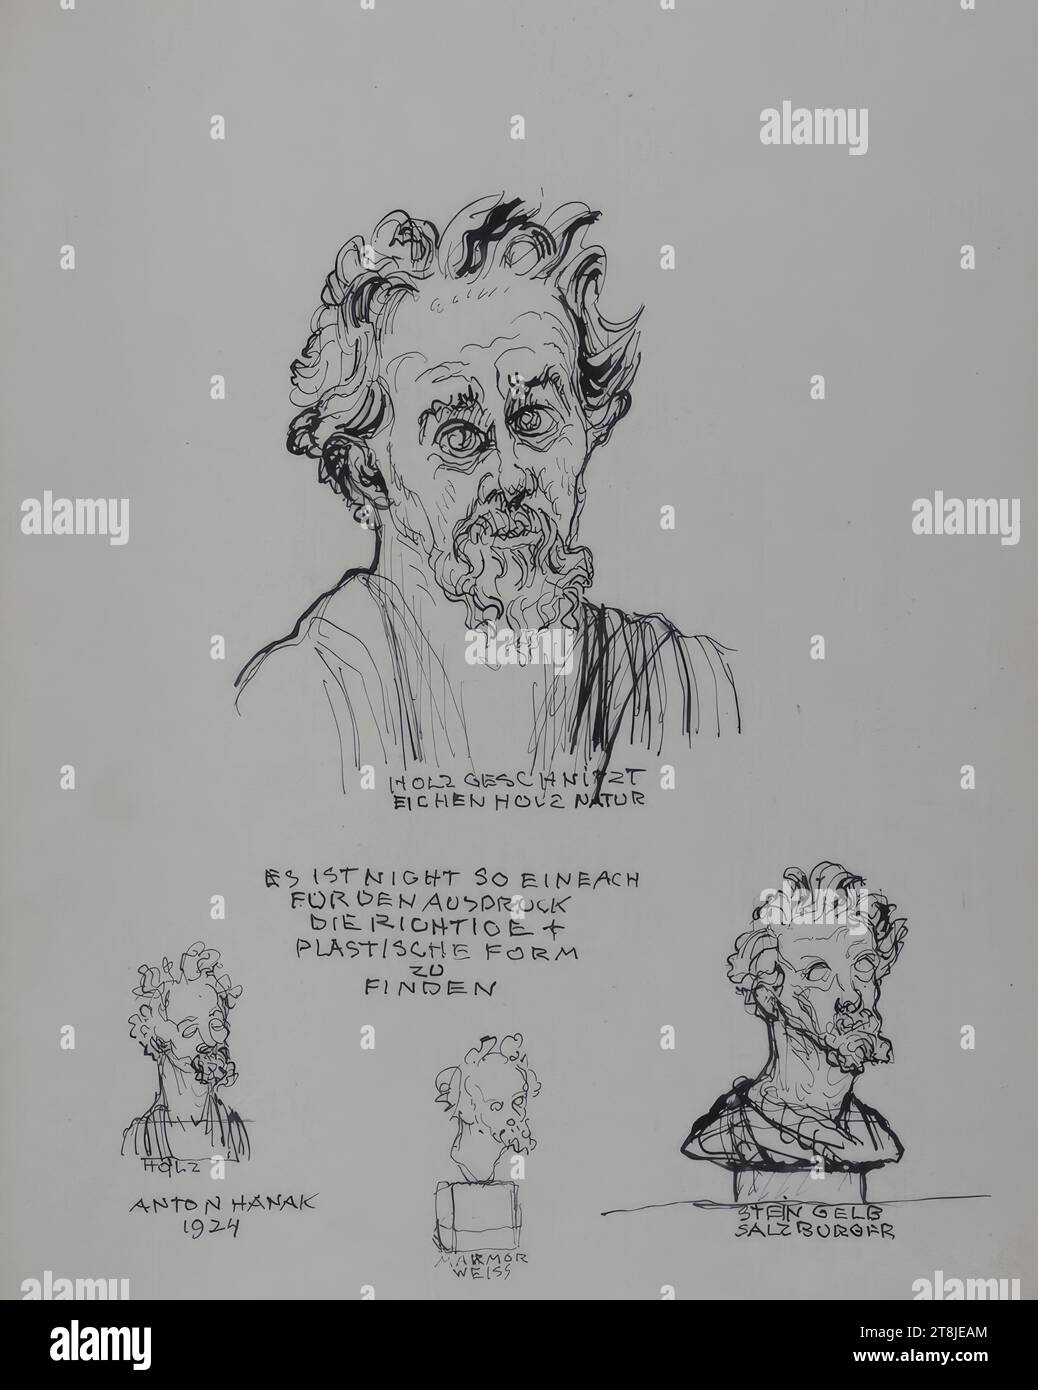 HOLZ GESCHNITZT
EICHENHOLZ NATUR
ES IST NIGHT SO EINEACH
FÜR DEN AUSDRUCK
DIE RICHTIGE +
PLASTISCHE FORM
ZU
FINDEN
HOLZ
ANTON HANAK
1924
MARMOR
WEISS
STEIN GELB
SALZBURGER
alamy
alamy
Image ID: 2T8JEAM
www.alamy.com